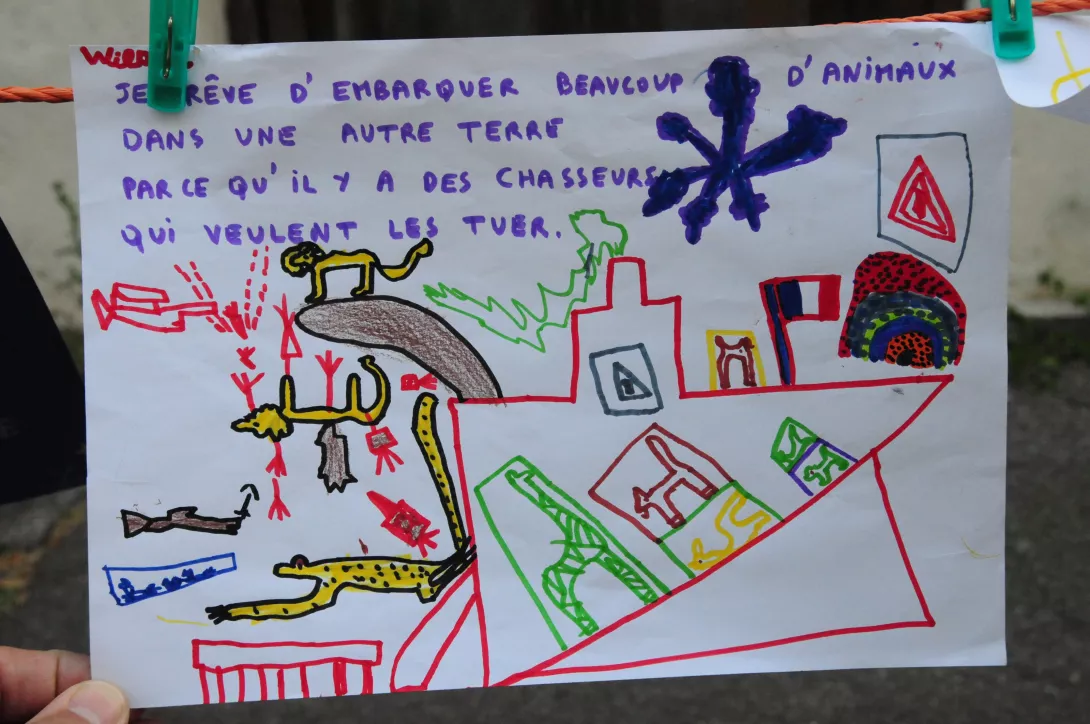 JE RÊVE D'EMBARQUER BEAUCOUP D'ANIMAUX
DANS UNE AUTRE TERRE
PARCE QU'IL Y A DES CHASSEURS
QUI VEULENT LES TUER.